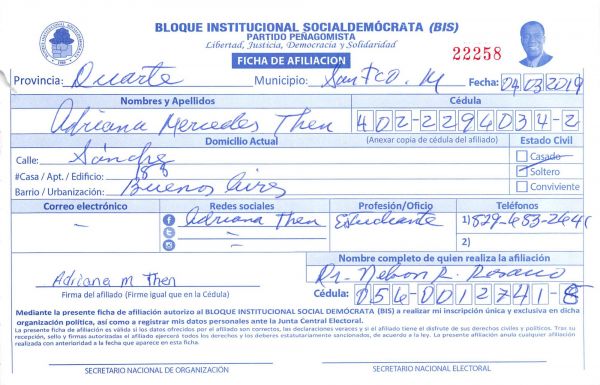 BLOQUE INSTITUCIONAL SOCIALDEMÓCRATA (BIS)
PARTIDO PEÑAGOMISTA
Libertad, Justicia, Democracia y Solidaridad
FICHA DE AFILIACION
22258
Provincia: Duarte Municipio: San Fco. M Fecha: 04 03 2019
Nombres y Apellidos Cédula
Adriana Mercedes Then 402-2294034-2
Domicilio Actual (Anexar copia de cédula del afiliado) Estado Civil
Calle: Sánchez Casado
#Casa / Apt. / Edificio: 188 Soltero
Barrio / Urbanización: Buenos Aires Conviviente
Correo electrónico Redes sociales Profesión/Oficio Teléfonos
- Adriana Then Estudiante 1) 829-683-2646
- 2)
Nombre completo de quien realiza la afiliación
Adriana M Then Dr. Nelson R. Rosario
Firma del afiliado (Firme igual que en la Cédula) Cédula: 056-0012741-8
Mediante la presente ficha de afiliación autorizo al BLOQUE INSTITUCIONAL SOCIAL DEMÓCRATA (BIS) a realizar mi inscripción única y exclusiva en dicha
organización política, así como a registrar mis datos personales ante la Junta Central Electoral.
La presente ficha de afiliación es válida si los datos ofrecidos por el afiliado son correctos, las declaraciones veraces y si el afiliado tiene el disfrute de sus derechos civiles y políticos. Tras su
recepción, sello y firmas autorizadas el afiliado ejercerá todos los derechos y los deberes estatutariamente sancionados, de acuerdo a la ley. La presente afiliación anula cualquier afiliación
realizada con anterioridad a la fecha que aparece en esta ficha.
SECRETARIO NACIONAL DE ORGANIZACIÓN SECRETARIO NACIONAL ELECTORAL